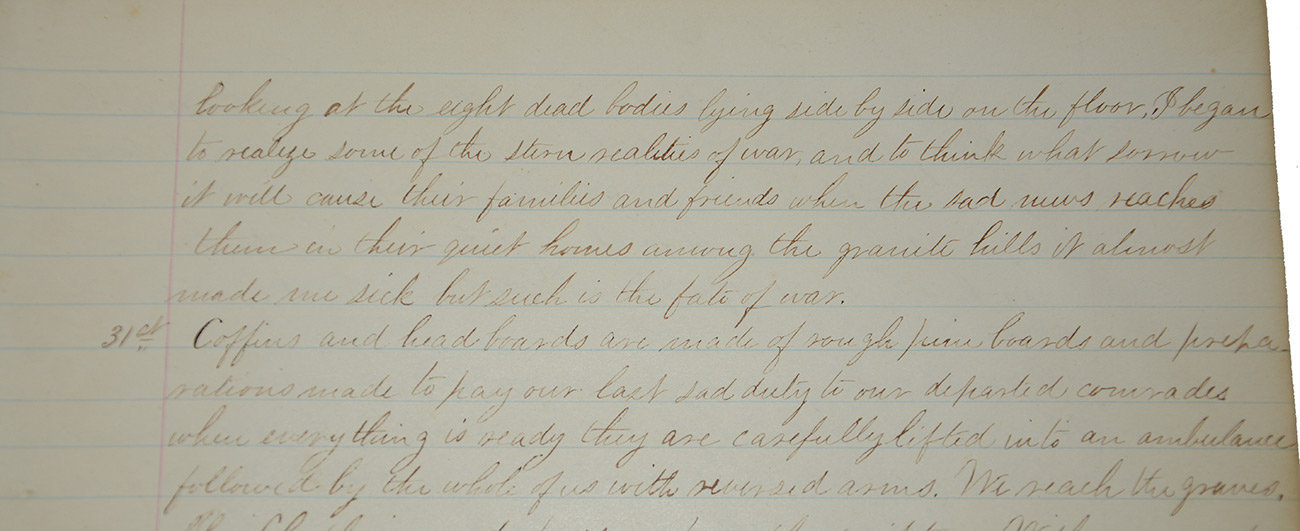 looking at the eight dead bodies lying side by side on the floor, I began
to realize some of the stern realities of war, and to think what sorrow
it will cause their families and friends when the sad news reaches
them in their quiet homes among the granite hills it almost
made me sick but such is the fate of war.
31st Coffins and head boards are made of rough pine boards and prepa-
rations made to pay our last sad duty to our departed comrades
when everything is ready they are carefully lifted into an ambulance
followed by the whole of us with reversed arms. We reach the graves.